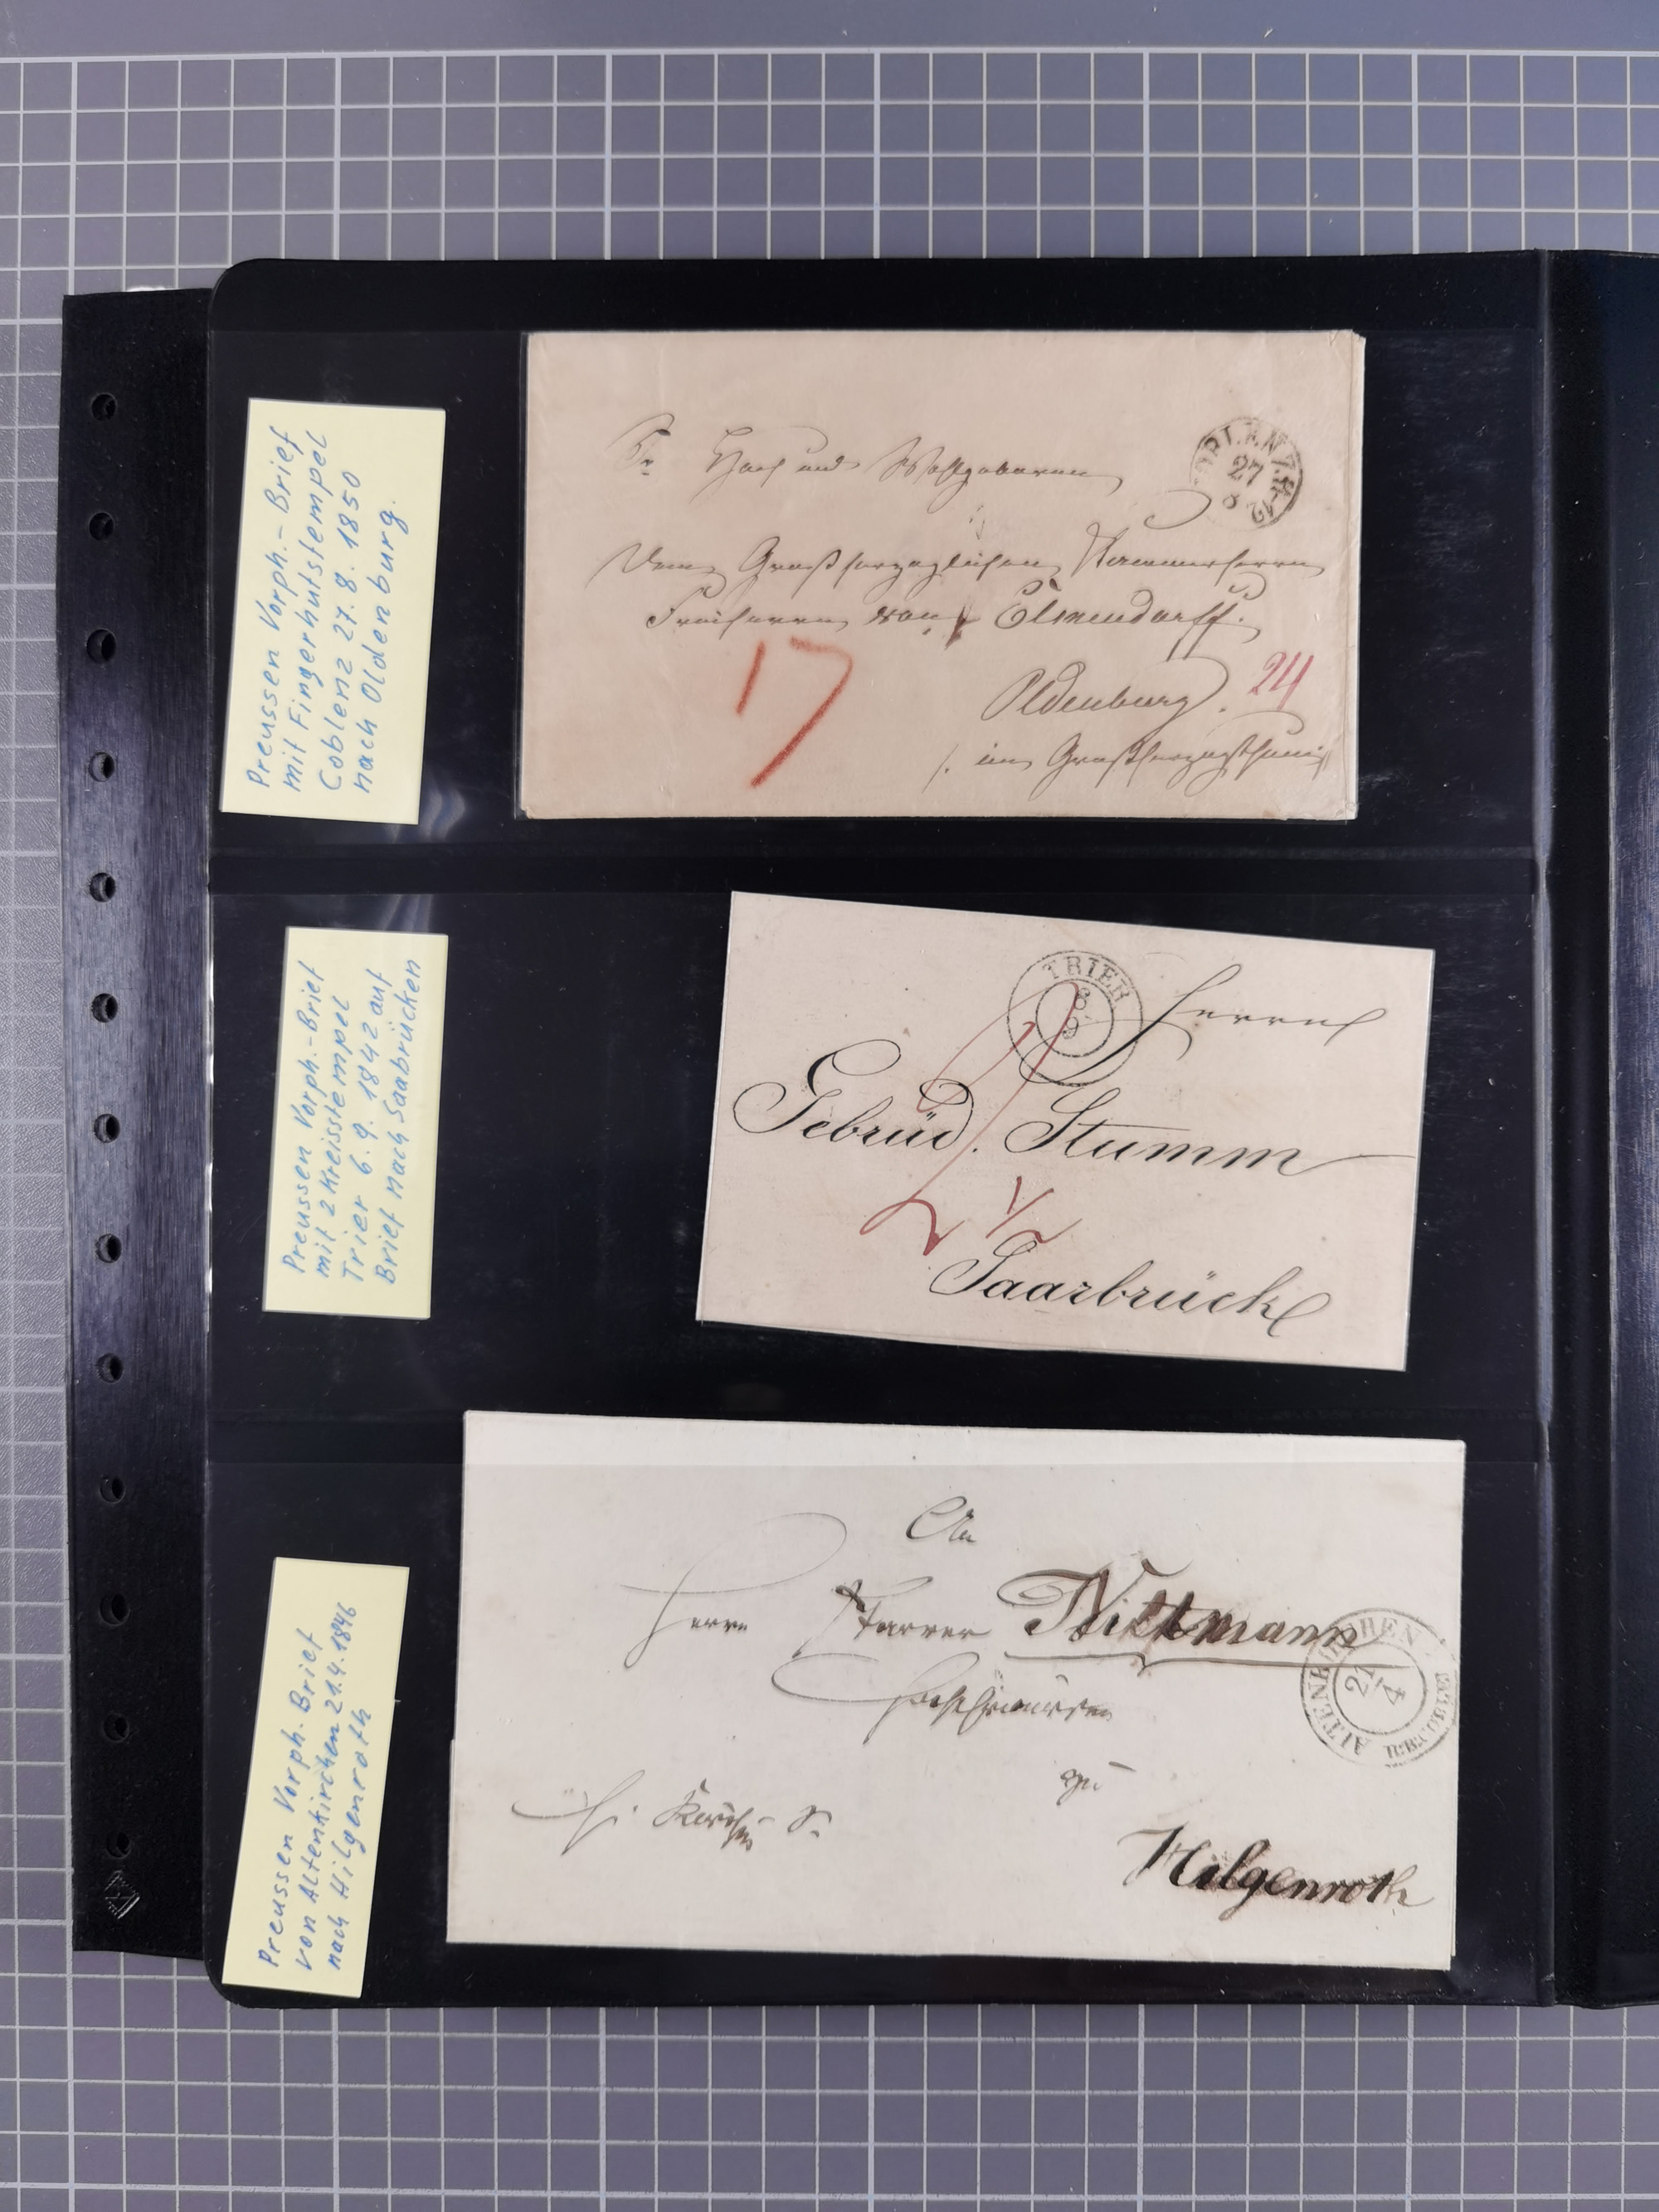 Preussen Vorph.- Brief
mit Fingerhutstempel
Coblenz 27. 8. 1850
nach Oldenburg.
Sr Hoch und Wohlgeboren
COBLENZ
27
8
Dem Großherzoglichen Kammerherrn
Freiherrn von Elmendorff.
17
Oldenburg. 24
/. im Großherzogthum
Preussen Vorph.-Brief
mit 2 Kreisstempel
Trier 6. 9. 1842 auf
Brief nach Saabrücken
TRIER
6
9
Herren
Gebrüd. Stumm
2 1/2
Saarbrück
Preussen Vorph. Brief
von Altenkirchen 21.4.1846
nach Hilgenroth
An
Herrn Pfarrer Wittmann
Hochehrwürden
ALTENKIRCHEN
21
4
zu
Hilgenroth